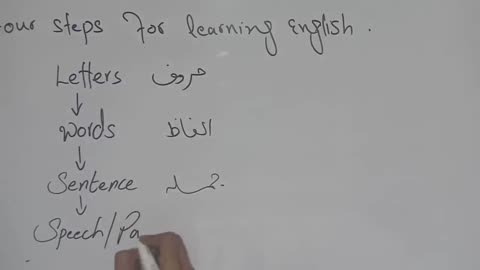 our steps for learning English.
Letters حروف
Words الفاظ
Sentence جملہ
Speech/Pa